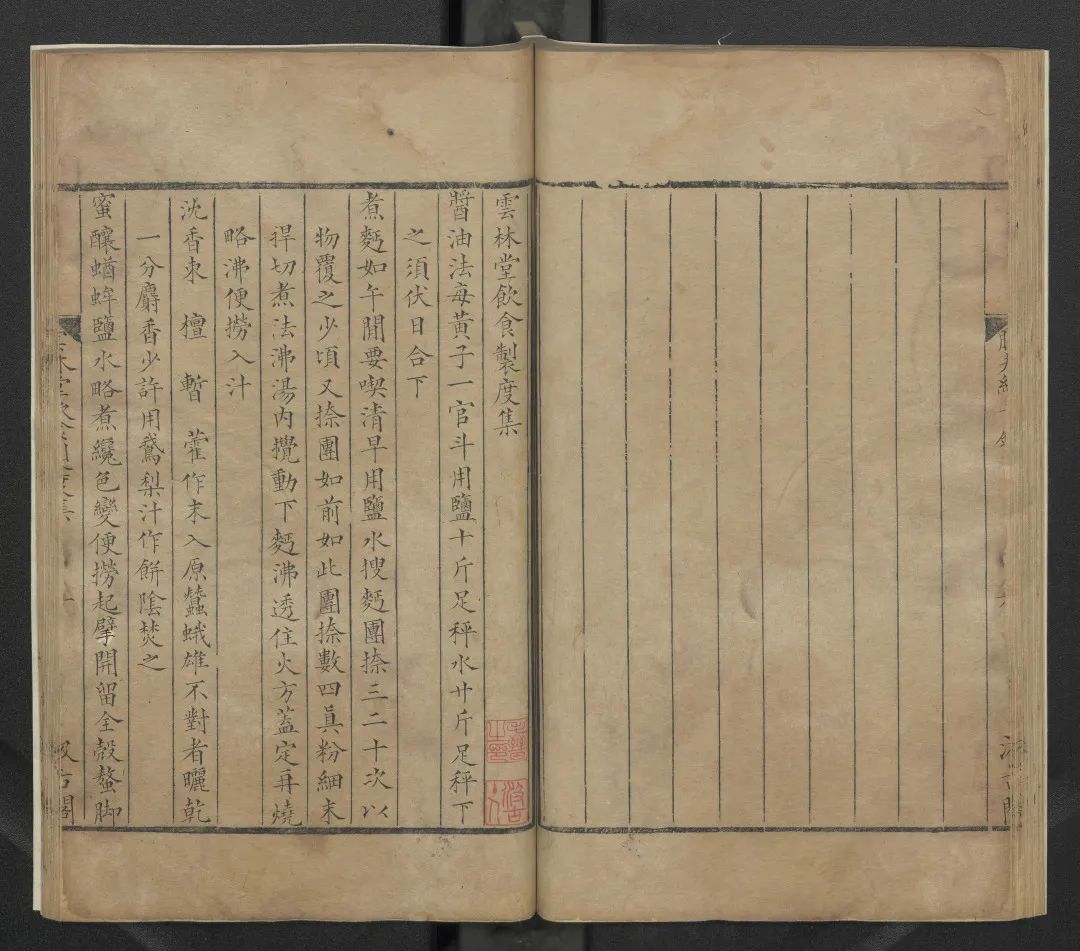 雲林堂飲食製度集
醬油法每黃子一官斗用鹽十斤足秤水廿斤足秤下
之須伏日合下
煮麪如午間要喫清早用鹽水搜麪團捺三二十次以
物覆之少頃又捺團如前如此團捺數四眞粉細末
捍切煮法沸湯内攪動下麪沸透住火方蓋定再燒
略沸便撈入汁
沈香朿 檀 暫 藿作末入原蠶蛾雄不對者曬乾
一分麝香少許用鵞梨汁作餅陰焚之
蜜釀蝤蛑鹽水略煮纔色變便撈起擘開留全殼螯脚
汲古閣